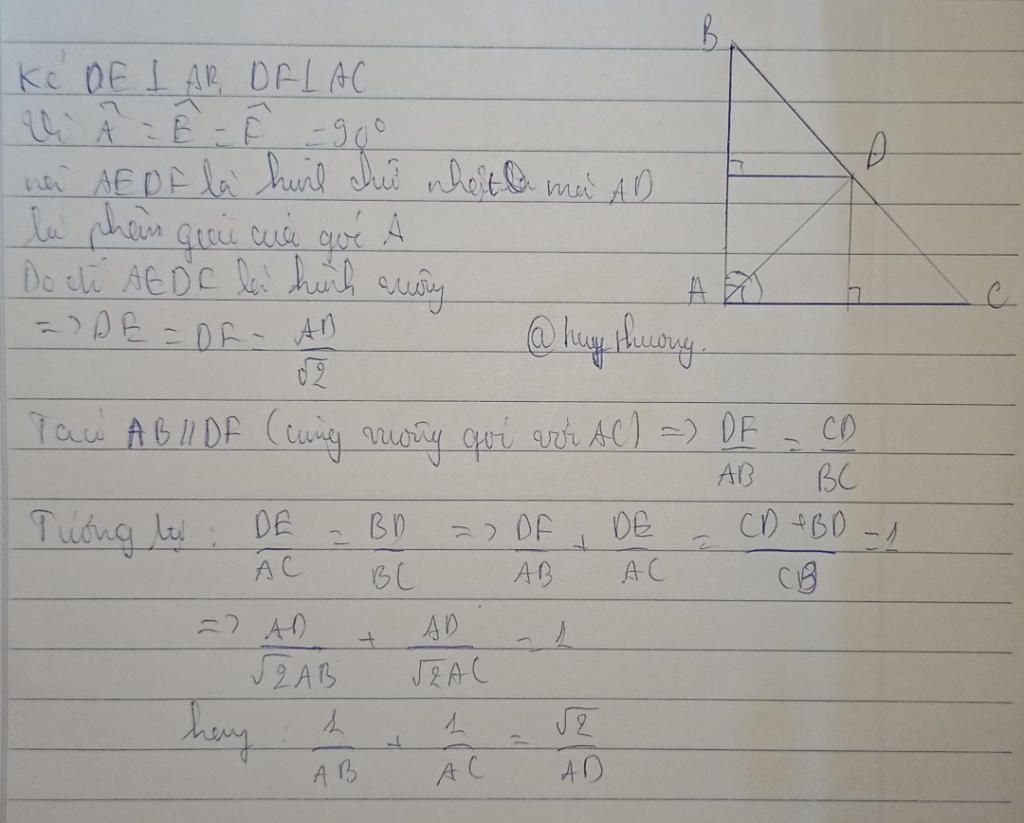 Kẻ DE ⊥ AB, DF ⊥ AC
Vì Â = Ê = F̂ = 90°
nên AEDF là hình chữ nhật mà AD
là phân giác của góc A
Do đó AEDF là hình vuông
=> DE = DF = AD/√2
@huythuong.
Ta có AB // DF (cùng vuông góc với AC) => DF/AB = CD/BC
Tương tự : DE/AC = BD/BC => DF/AB + DE/AC = CD + BD/CB = 1
=> AD/√2AB + AD/√2AC = 1
hay : 1/AB + 1/AC = √2/AD
B
D
A
C